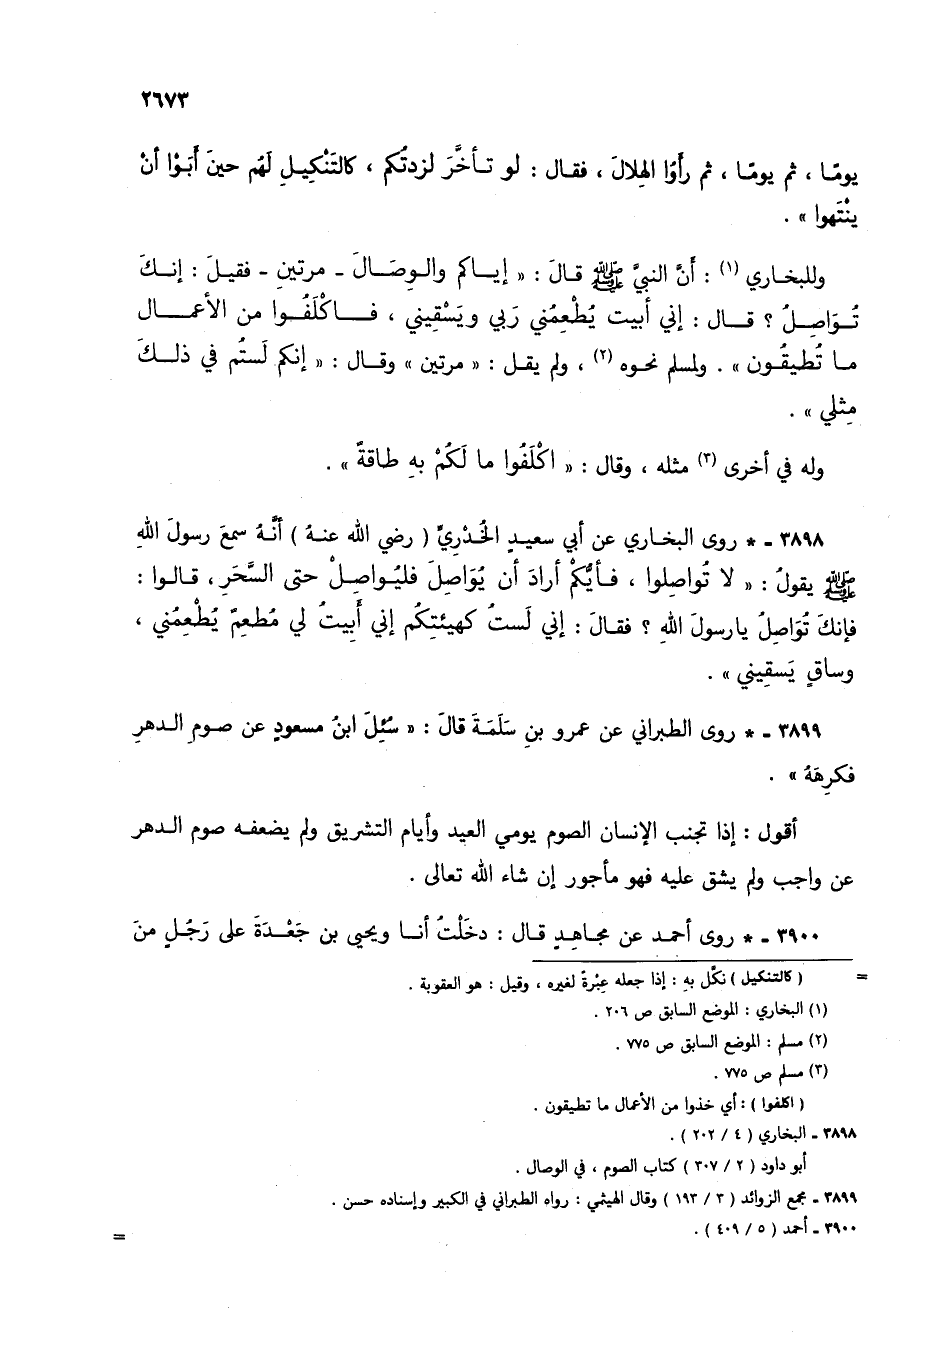 ٢٦٧٣
يومًا ، ثم يومًا ، ثم رأَوُا الهِلالَ ، فقال : لو تأخَّرَ لزدتُكم ، كالتَنْكِيلِ لَهُم حينَ أَبَوْا أنْ
ينْتَهوا » .
وللبخاري (١) : أنَّ النبيَّ ﷺ قالَ : « إياكم والوِصَالَ - مرتينِ - فقيلَ : إنكَ
تُوَاصِلُ ؟ قال : إني أبيت يُطْعِمُني رَبي ويَسْقِيني ، فاكْلَفُوا من الأعمال
ما تُطيقُون » . ولمسلم نحوه (٢) ، ولم يقل : « مرتين » وقال : « إنكم لَستُم في ذلكَ
مِثلي » .
وله في أخرى (٣) مثله ، وقال : « اكْلَفُوا ما لَكُمْ بهِ طاقةٌ » .
٣٨٩٨ - * روى البخاري عن أبي سعيدٍ الخُدْريِّ ( رضي الله عنهُ ) أنَّهُ سمعَ رسولَ اللهِ
ﷺ يقولُ : « لا تُواصِلوا ، فأيُّكمْ أرادَ أن يُوَاصِلَ فليُواصِلْ حتى السَّحَرِ ، قالوا :
فإنكَ تُوَاصِلُ يارسولَ اللهِ ؟ فقالَ : إني لَستُ كهيئتِكُم إني أَبِيتُ لي مُطعِمٌ يُطْعِمُني ،
وساقٍ يَسقِيني » .
٣٨٩٩ - * روى الطبراني عن عمرو بنِ سَلَمَةَ قالَ : « سُئِلَ ابنُ مسعودٍ عن صومِ الدهرِ
فكرِهَهُ » .
أقول : إذا تجنب الإنسان الصوم يومي العيد وأيام التشريق ولم يضعفه صوم الدهر
عن واجب ولم يشق عليه فهو مأجور إن شاء الله تعالى .
٣٩٠٠ - * روى أحمد عن مجاهدٍ قال : دخلْتُ أنا ويحيى بن جَعْدَةَ على رَجُلٍ منَ
= ( كالتنكيل ) نكَّل به : إذا جعله عِبْرةً لغيره ، وقيل : هو العقوبة .
(١) البخاري : الموضع السابق ص ٢٠٦ .
(٢) مسلم : الموضع السابق ص ٧٧٥ .
(٣) مسلم ص ٧٧٥ .
( اكلفوا ) : أي خذوا من الأعمال ما تطيقون .
٣٨٩٨ - البخاري ( ٤ / ٢٠٢ ) .
أبو داود ( ٢ / ٣٠٧ ) كتاب الصوم ، في الوصال .
٣٨٩٩ - مجمع الزوائد ( ٣ / ١٩٣ ) وقال الهيثمي : رواه الطبراني في الكبير وإسناده حسن .
٣٩٠٠ - أحمد ( ٥ / ٤٠٩ ) .
=